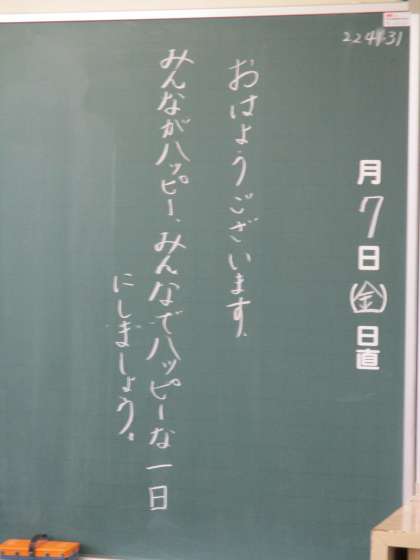 月7日(金)日直
おはようございます。
みんながハッピー、みんなでハッピーな一日
にしましょう。